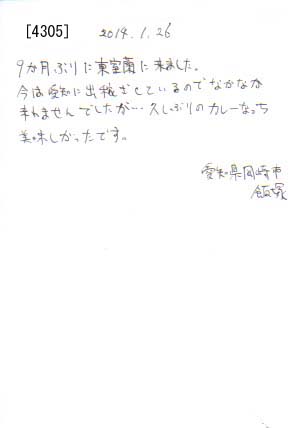 [4305] 2014.1.26
9か月ぶりに東室蘭に来ました。
今は愛知に出稼ぎしているのでなかなか
来れませんでしたが… 久しぶりのカレーなっち
美味しかったです。
愛知県岡崎市
飯塚